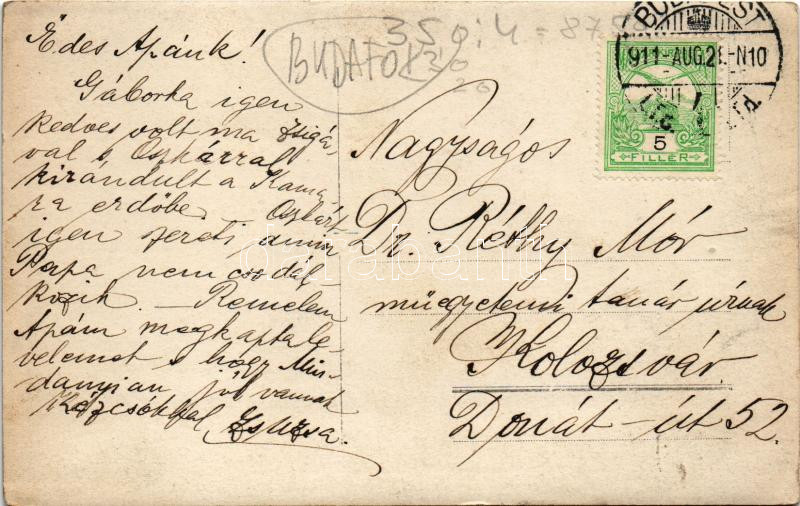 Édes Apánk!
Gáborka igen
kedves volt ma Zsigá-
val s Oszkárral
kirandult a Kama-
ra erdőbe. Oszkárt
igen szereti amin
Papa nem csodál-
kozik. – Remelem
Apám megkapta le-
velemet s hogy Min-
danyian jól vannak
Kézcsókkal Zsuzsa.
BUDAFOK
350:4=875
20
BUDAPEST
911-AUG.21.-N10
5
FILLÉR
Nagyságos
Dr. Réthy Mór
műegyetemi tanár úrnak
Kolozsvár
Donát-út 52.
darabanth